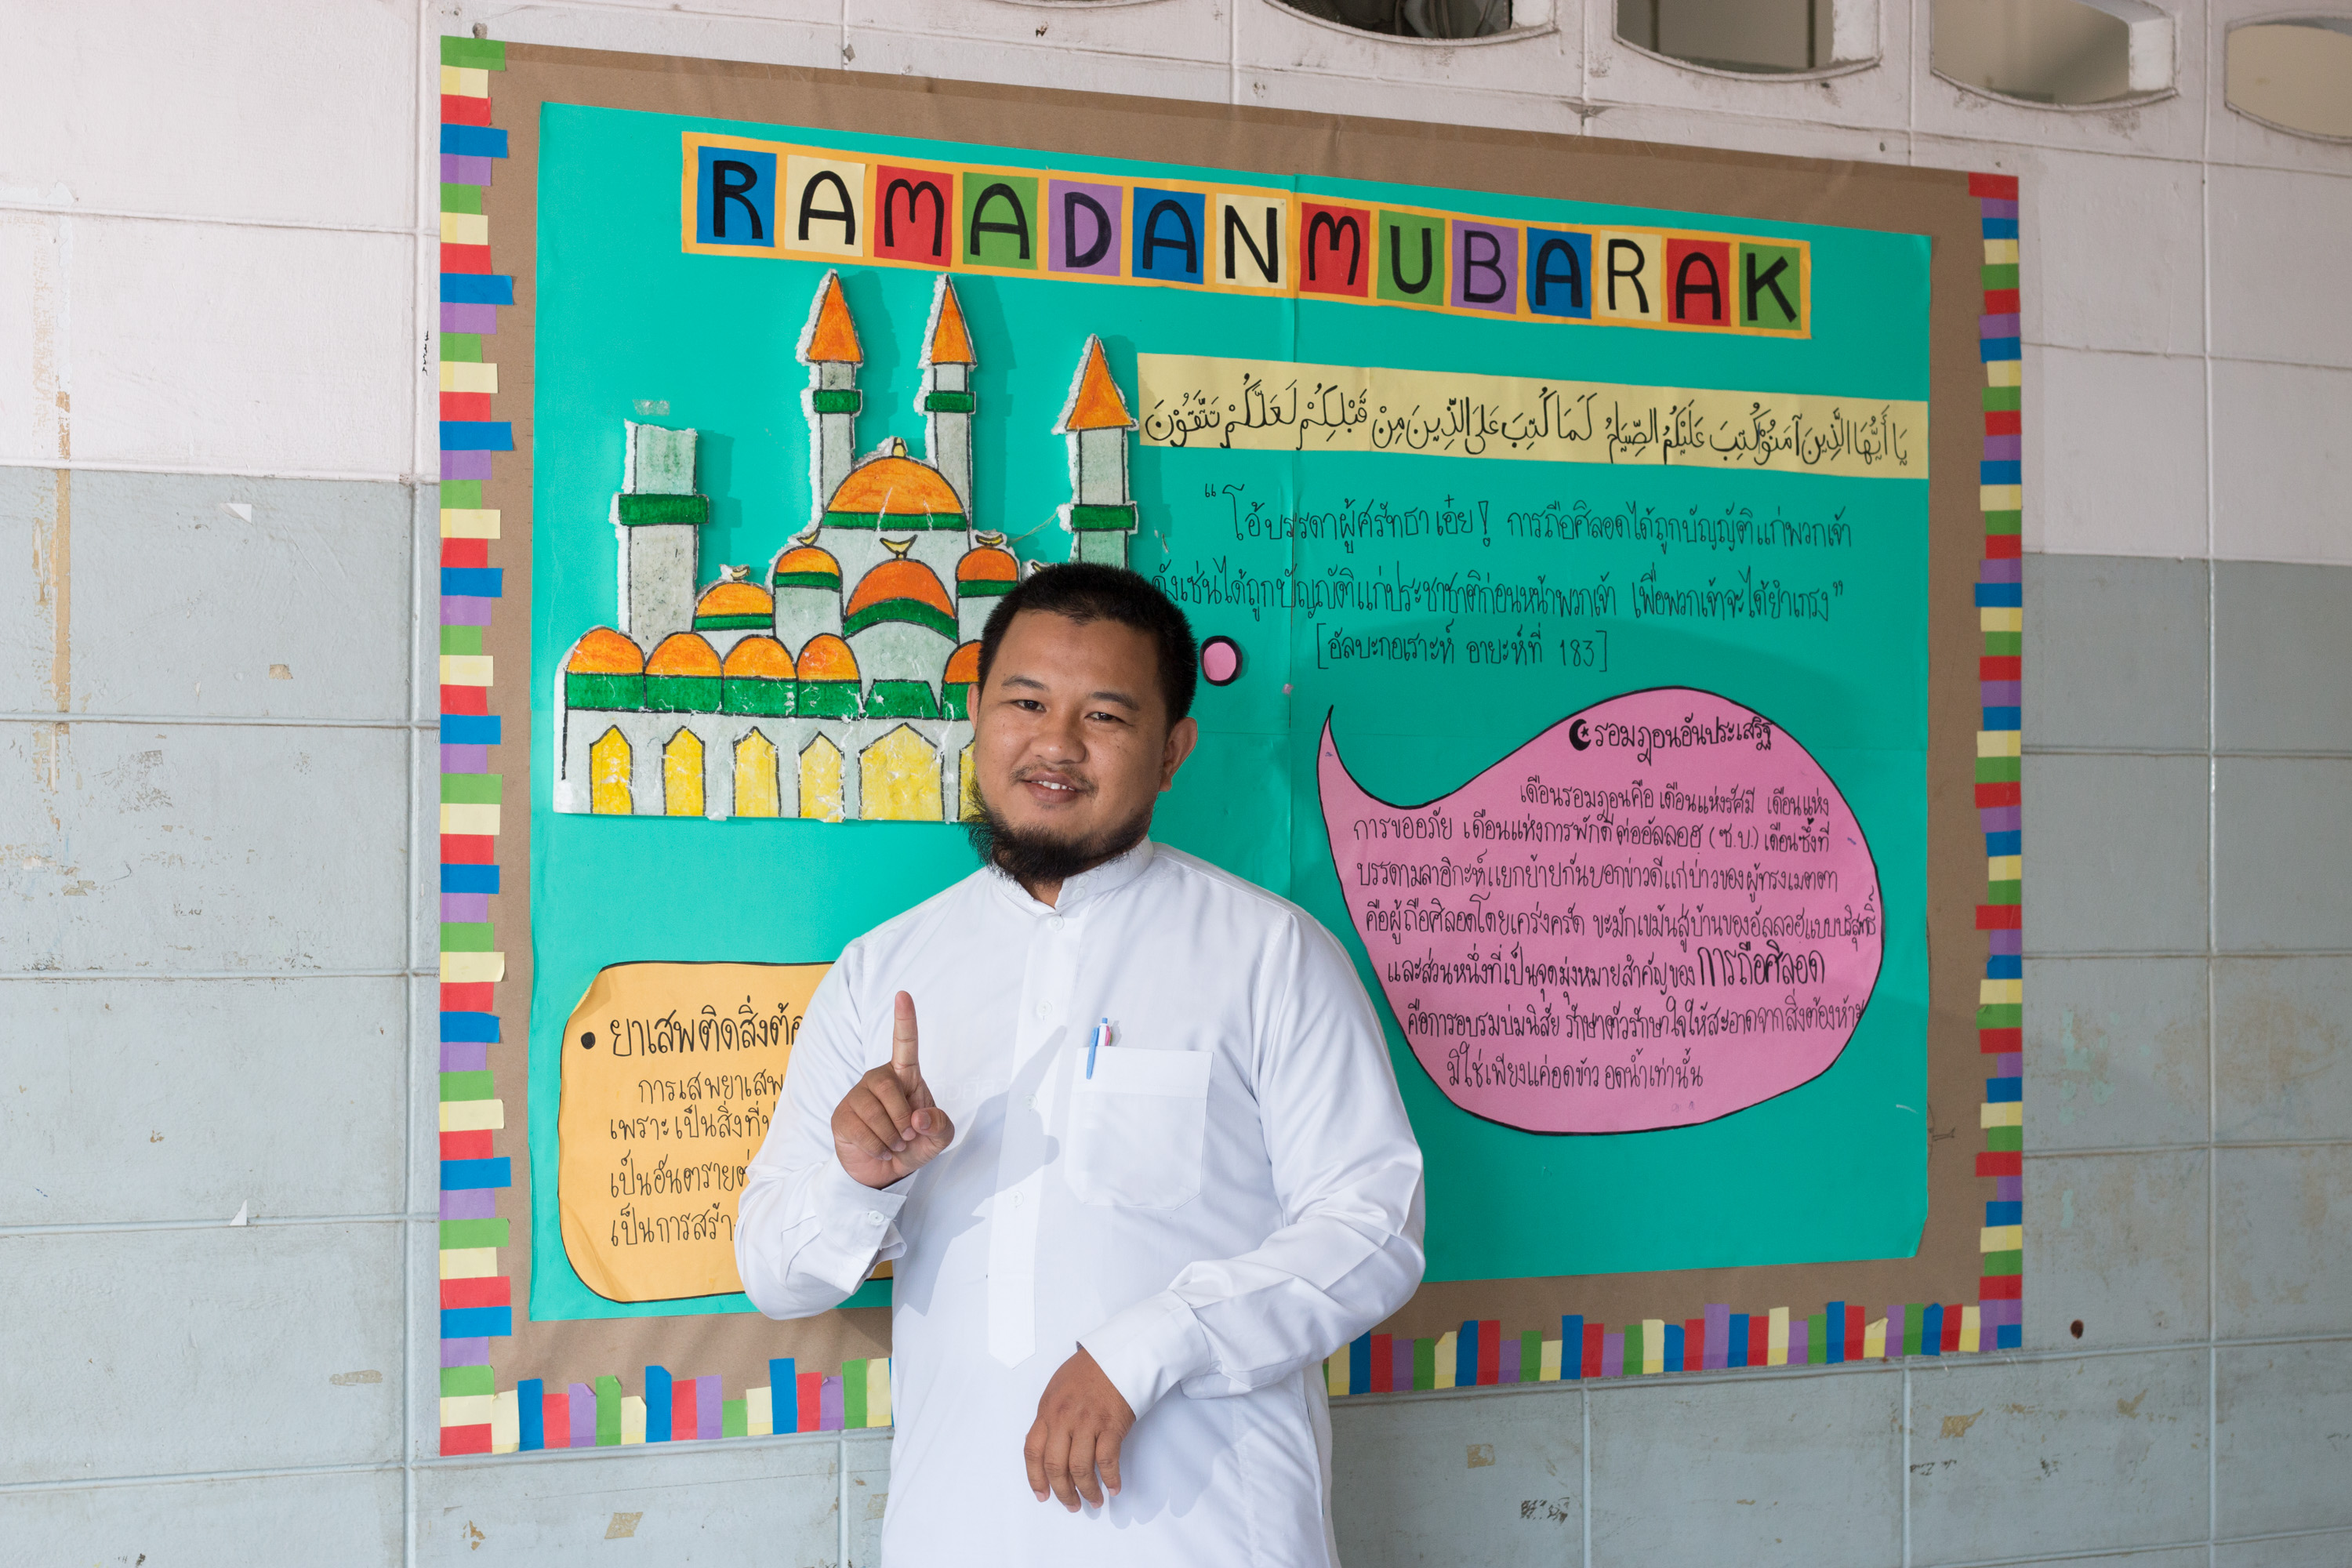 RAMADAN MUBARAK
يَا أَيُّهَا الَّذِينَ آمَنُوْا كُتِبَ عَلَيْكُمُ الصِّيَامُ كَمَا كُتِبَ عَلَى الَّذِينَ مِنْ قَبْلِكُمْ لَعَلَّكُمْ تَتَّقُوْنَ
"โอ้บรรดาผู้ศรัทธาเอ๋ย! การถือศิลอดได้ถูกบัญญัติแก่พวกเจ้า
ดั่งเช่นได้ถูกบัญญัติแก่ประชาชาติก่อนหน้าพวกเจ้า เพื่อพวกเจ้าจะได้ยำเกรง"
[อัลบะกอเราะห์ อายะห์ที่ 183]
รอมฎอนอันประเสริฐ
เดือนรอมฎอนคือ เดือนแห่งรัศมี เดือนแห่ง
การขออภัย เดือนแห่งการภักดีต่ออัลลอฮ (ซ.บ.) เดือนซึ่งที่
บรรดามลาอิกะห์แยกย้ายกันบอกข่าวดีแก่บ่าวของผู้ทรงเมตตา
คือผู้ถือศิลอดโดยเคร่งครัด ขะมักเขม้นสู่บ้านของอัลลอฮแบบบริสุทธิ์
และส่วนหนึ่งที่เป็นจุดมุ่งหมายสำคัญของ การถือศิลอด
คือการอบรมบ่มนิสัย รักษาตัวรักษาใจให้สะอาดจากสิ่งต้องห้าม
มิใช่เพียงแค่อดข้าว อดน้ำเท่านั้น
• ยาเสพติดสิ่งต้อ
การเสพยาเสพ
เพราะเป็นสิ่งที่
เป็นอันตรายต่
เป็นการสร้า